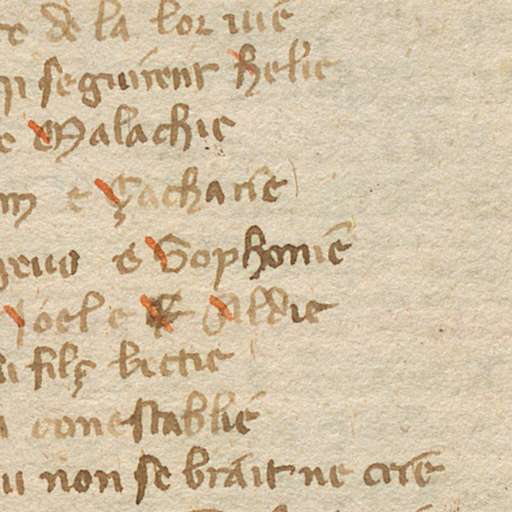 de la lor vie
seguirent helie
e Malachie
e Çacharie
e Sophonie
Joel e Aldie
filç bietie
conestablie
u non se brait ne crie